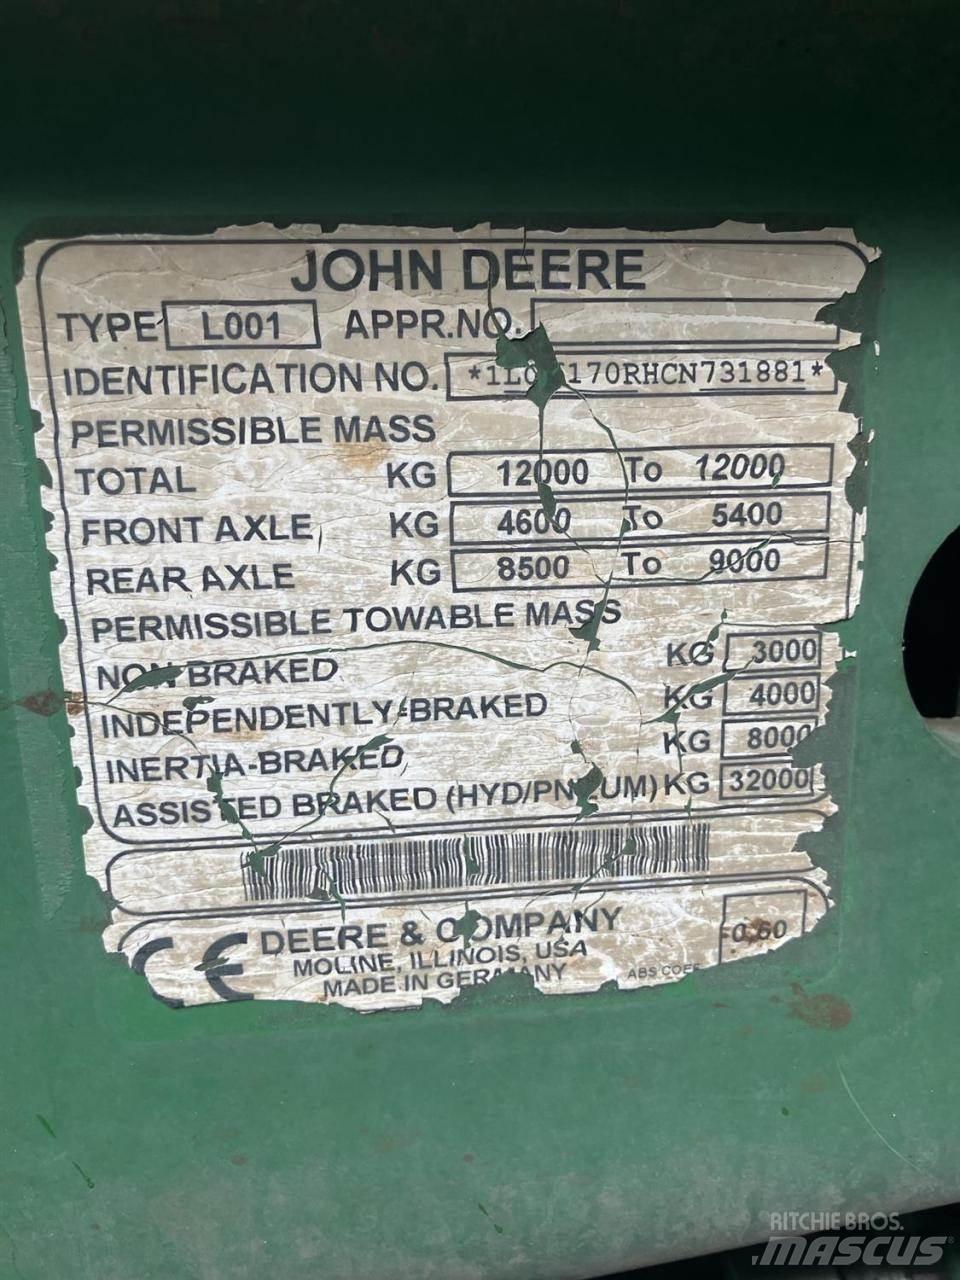 JOHN DEERE
TYPE L001 APPR.NO.
IDENTIFICATION NO.
PERMISSIBLE MASS
TOTAL KG 12000 To 12000
FRONT AXLE KG 4600 To 5400
REAR AXLE KG 8500 To 9000
PERMISSIBLE TOWABLE MASS
NON BRAKED KG 3000
INDEPENDENTLY-BRAKED KG 4000
INERTIA-BRAKED KG 8000
ASSISTED BRAKED (HYD/PNEUM) KG 32000
CE DEERE & COMPANY
MOLINE, ILLINOIS, USA
MADE IN GERMANY
0,60
ABS COEF
RITCHIE BROS.
MASCUS